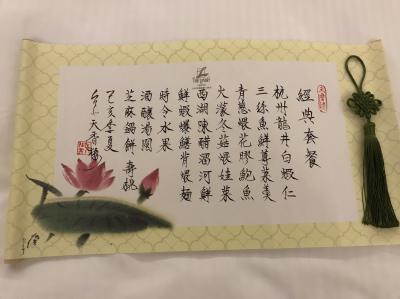 經典套餐
杭州龍井白蝦仁
三絲魚鱘蓴菜羹
青蔥煨花膠鮑魚
火濛冬菇煨娃菜
西湖陳醋溜河鮮
鮮蝦爆鱔背煨麵
時令水果
酒釀湯圓
芝麻鍋餅 壽桃
己亥季夏
天香樓